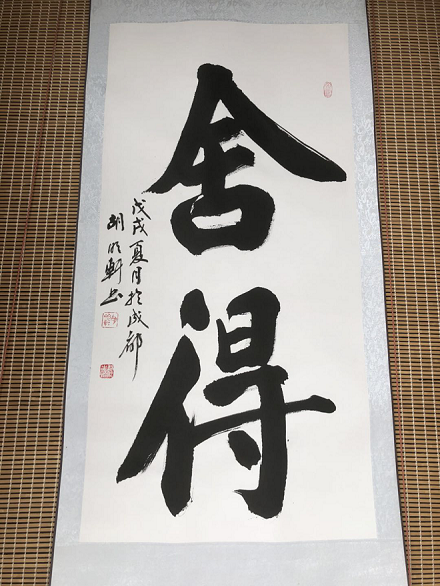 舍得
戊戌夏月於成都
胡明軒书